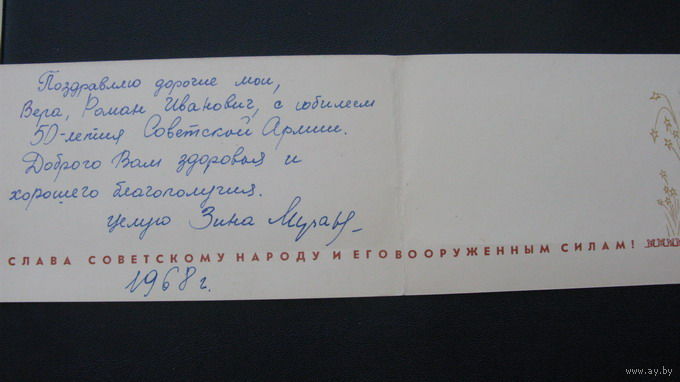 Поздравляю дорогие мои,
Вера, Роман Иванович, с юбилеем
50-летия Советской Армии.
Доброго Вам здоровья и
хорошего благополучия.
целую Зина
СЛАВА СОВЕТСКОМУ НАРОДУ И ЕГО ВООРУЖЕННЫМ СИЛАМ!
1968 г.
www.ay.by